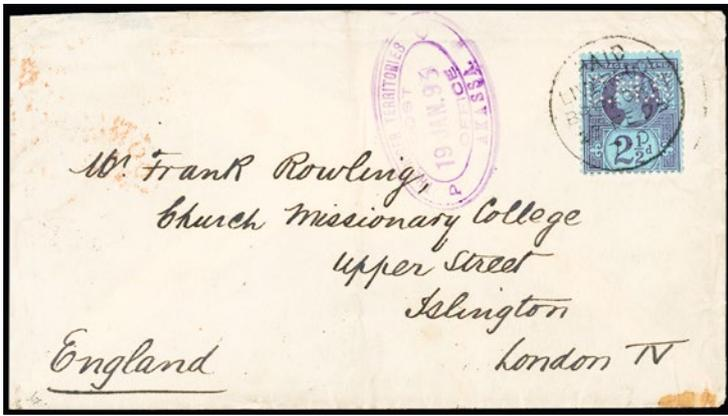 NIGER TERRITORIES
POST OFFICE
19 JAN. 93
AKASSA
PAID
2½d
Mr Frank Rowling,
Church Missionary College
Upper Street
Islington
London N
England